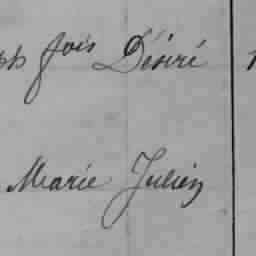 ph fois Désiré
Marie Julien